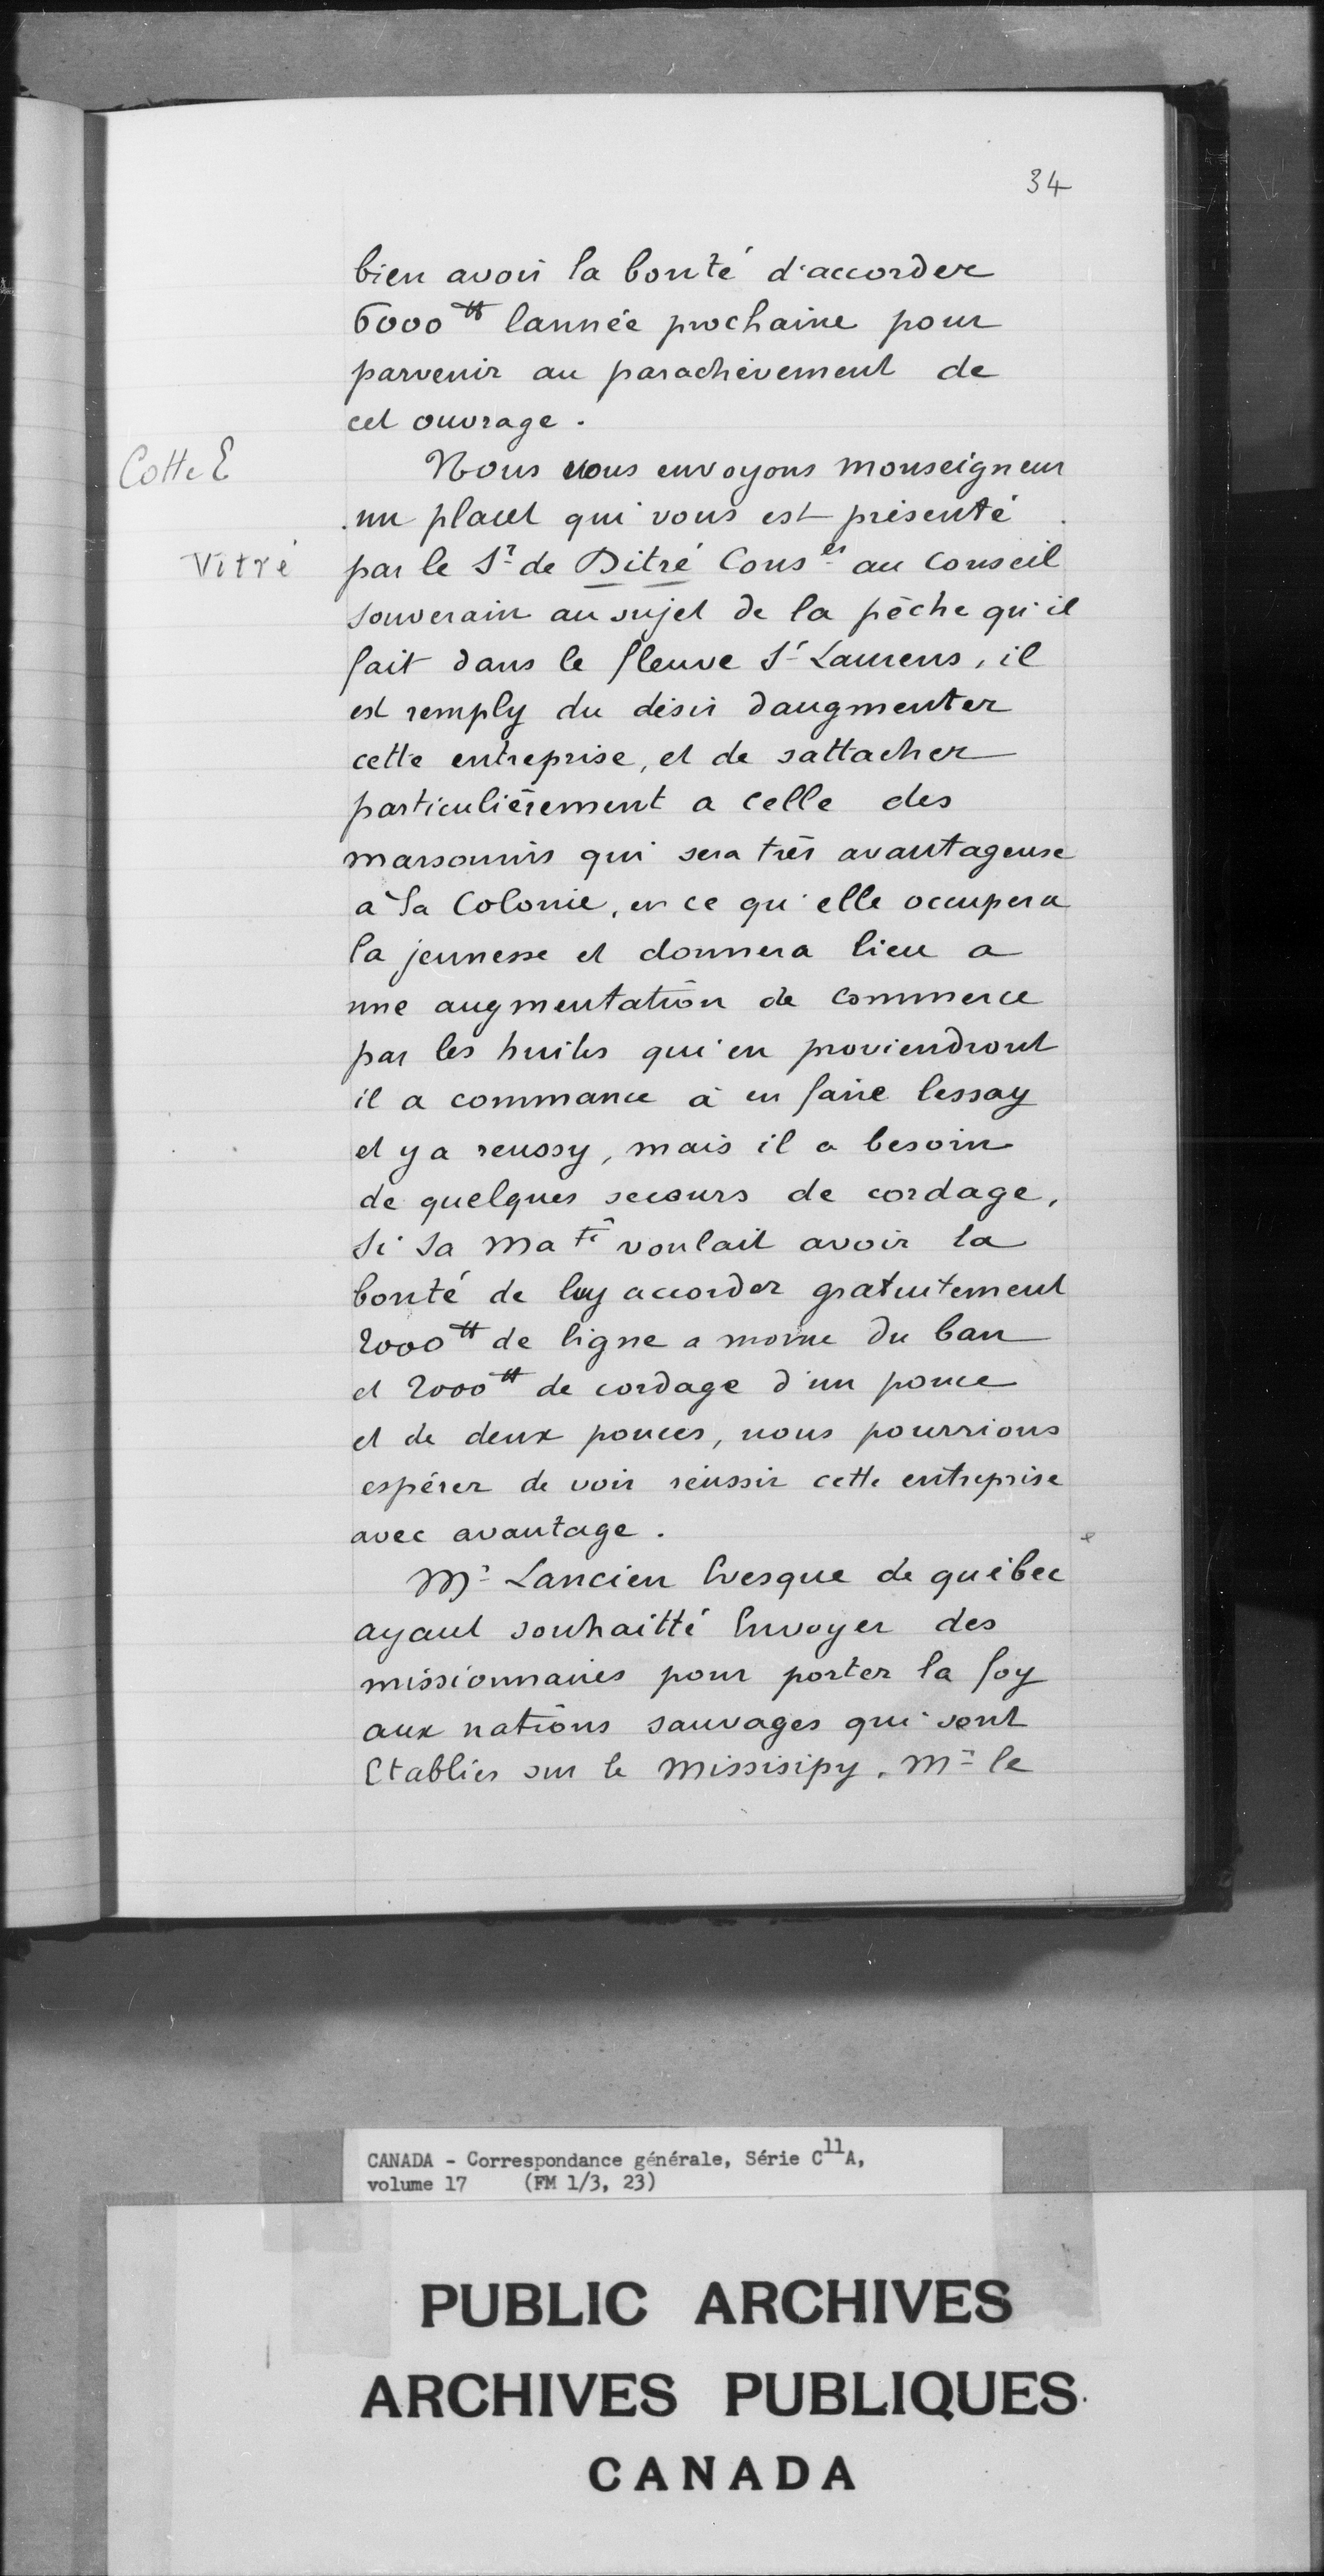 34
bien avoir la bonté d'accorder
6000 ₶ lannée prochaine pour
parvenir au parachèvement de
cet ouvrage.
Cotte E
Nous vous envoyons monseigneur
un placet qui vous est présenté
Vitré
par le Sr de Ditré Cons er au Conseil
souverain au sujet de la pêche qu'il
fait dans le fleuve St Laurens, il
est remply du désir daugmenter
cette entreprise, et de sattacher
particulièrement a celle des
marsouins qui sera très avantageuse
à la Colonie, en ce qu'elle occupera
la jeunesse et donnera lieu a
une augmentation de commerce
par les huiles qui en proviendront
il a commance à en faire lessay
et y a reussy, mais il a besoin
de quelques secours de cordage,
Si Sa Ma té voulait avoir la
bonté de luy accorder gratuitement
2000 ₶ de ligne a morne du ban
et 2000 ₶ de cordage d'un pouce
et de deux pouces, nous pourrions
espérer de voir réussir cette entreprise
avec avantage.
Mr Lancien Evesque de québec
ayant souhaitté Envoyer des
missionnaires pour porter la foy
aux nations sauvages qui sont
Etablies sur le Missisipy. Mr le
CANADA - Correspondance générale, Série C11A,
volume 17 (FM 1/3, 23)
PUBLIC ARCHIVES
ARCHIVES PUBLIQUES
CANADA